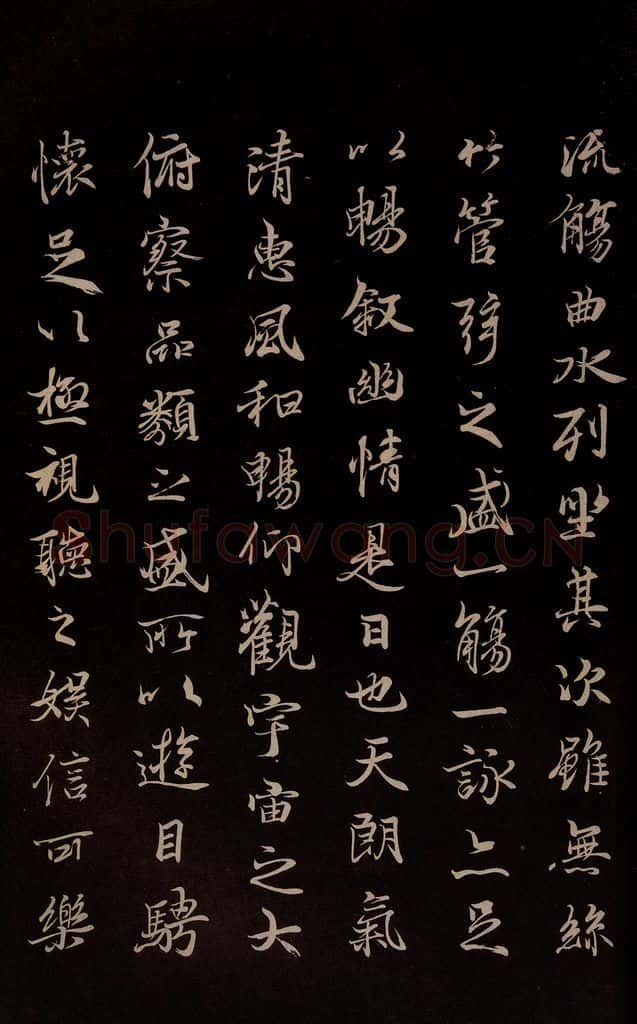 流觴曲水列坐其次雖無絲
竹管弦之盛一觴一詠亦足
以暢叙幽情是日也天朗氣
清惠風和暢仰觀宇宙之大
俯察品類之盛所以遊目騁
懷足以極視聽之娛信可樂
Shufawang.CN